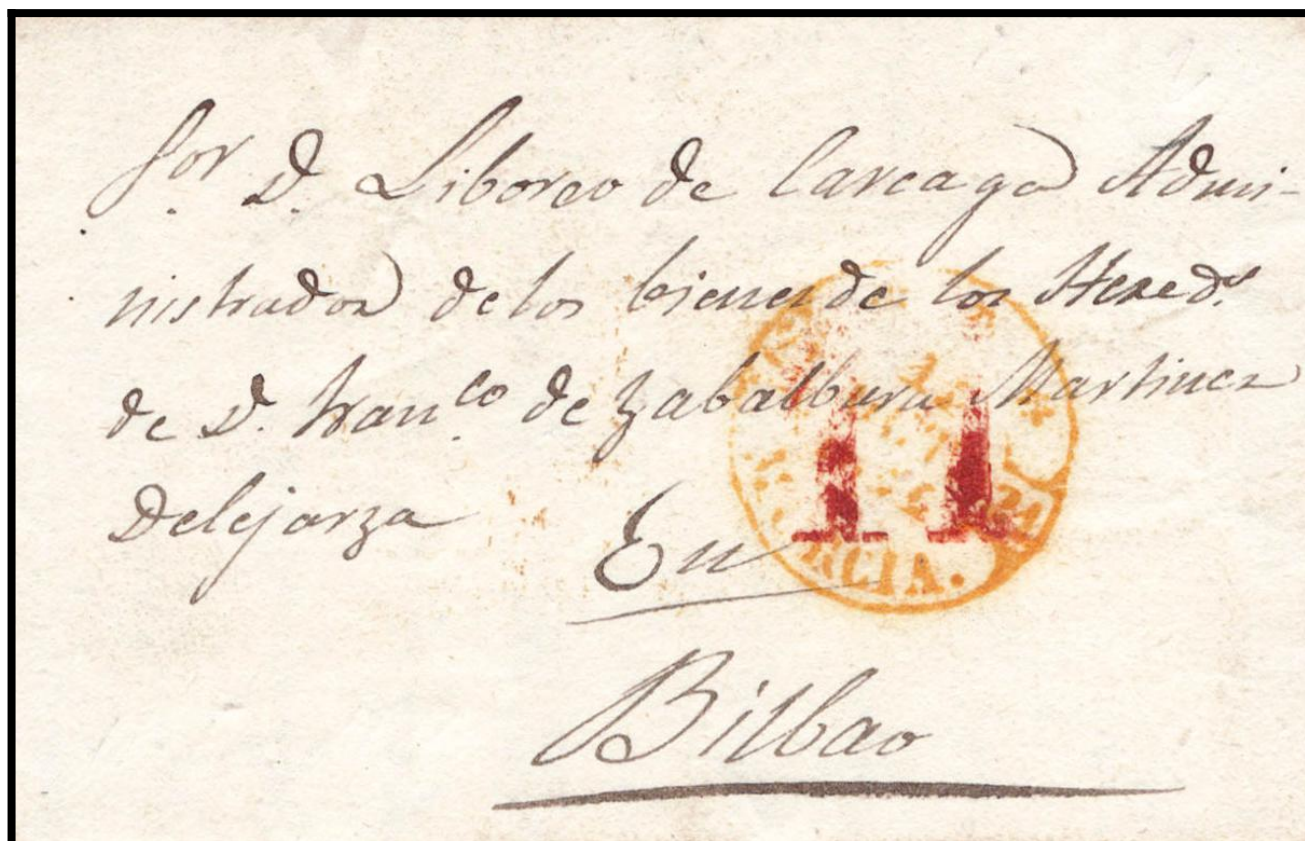 Sor. D. Liboreo de Careaga Admi-
nistrador de los bienes de los Hered.s
de D. Fran.co de Zabalburu Martinez
Delejarza
11
RCIA.
En
Bilbao